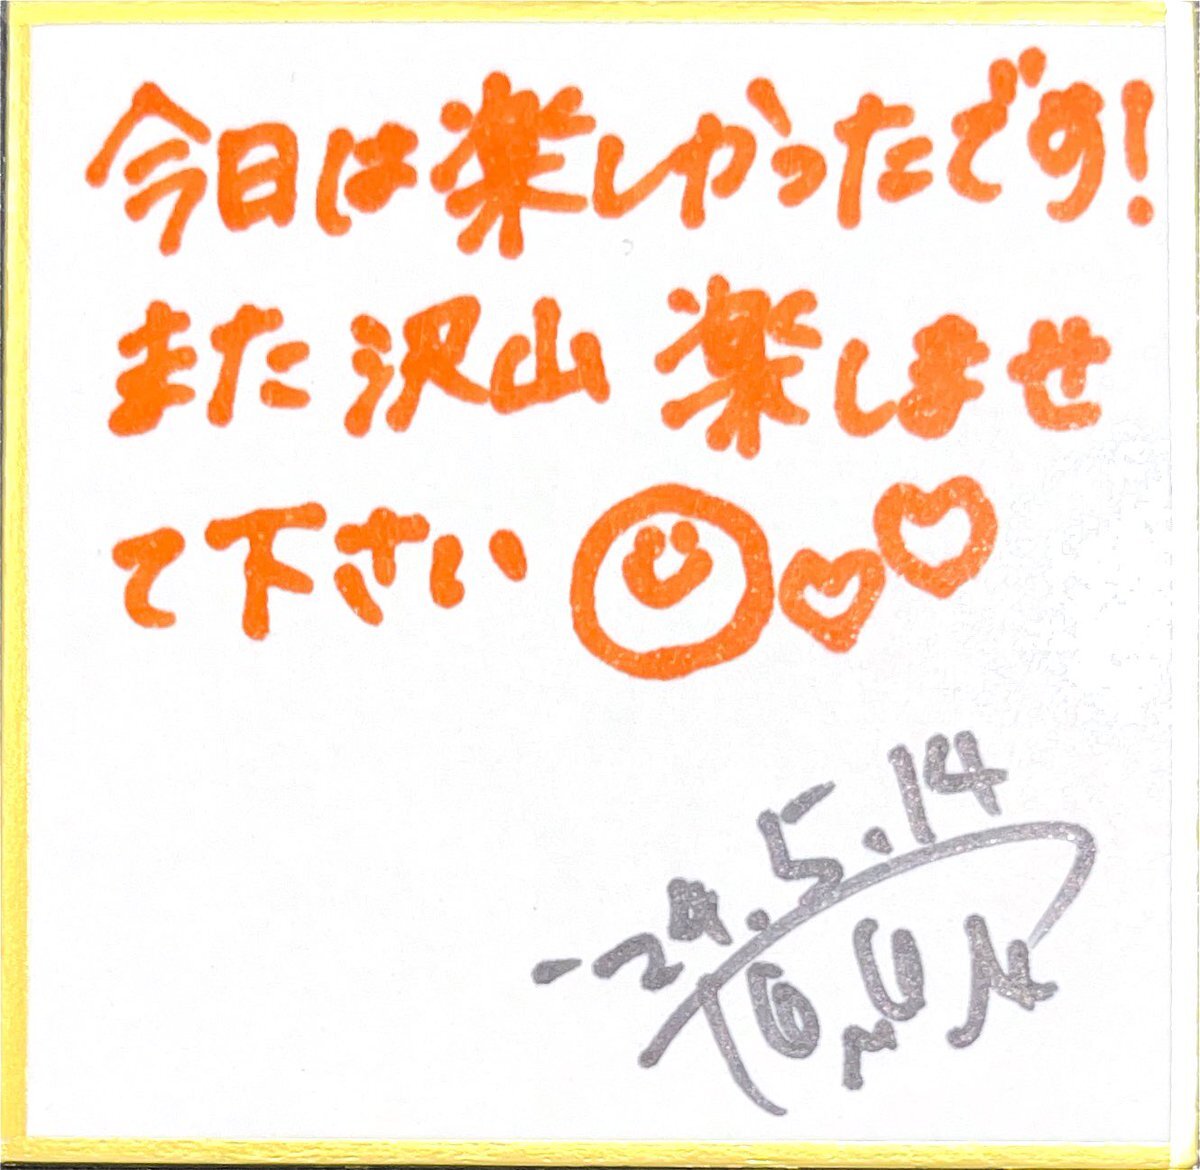 今日は楽しかったです!
また沢山 楽しませ
て下さい
-29.5.14